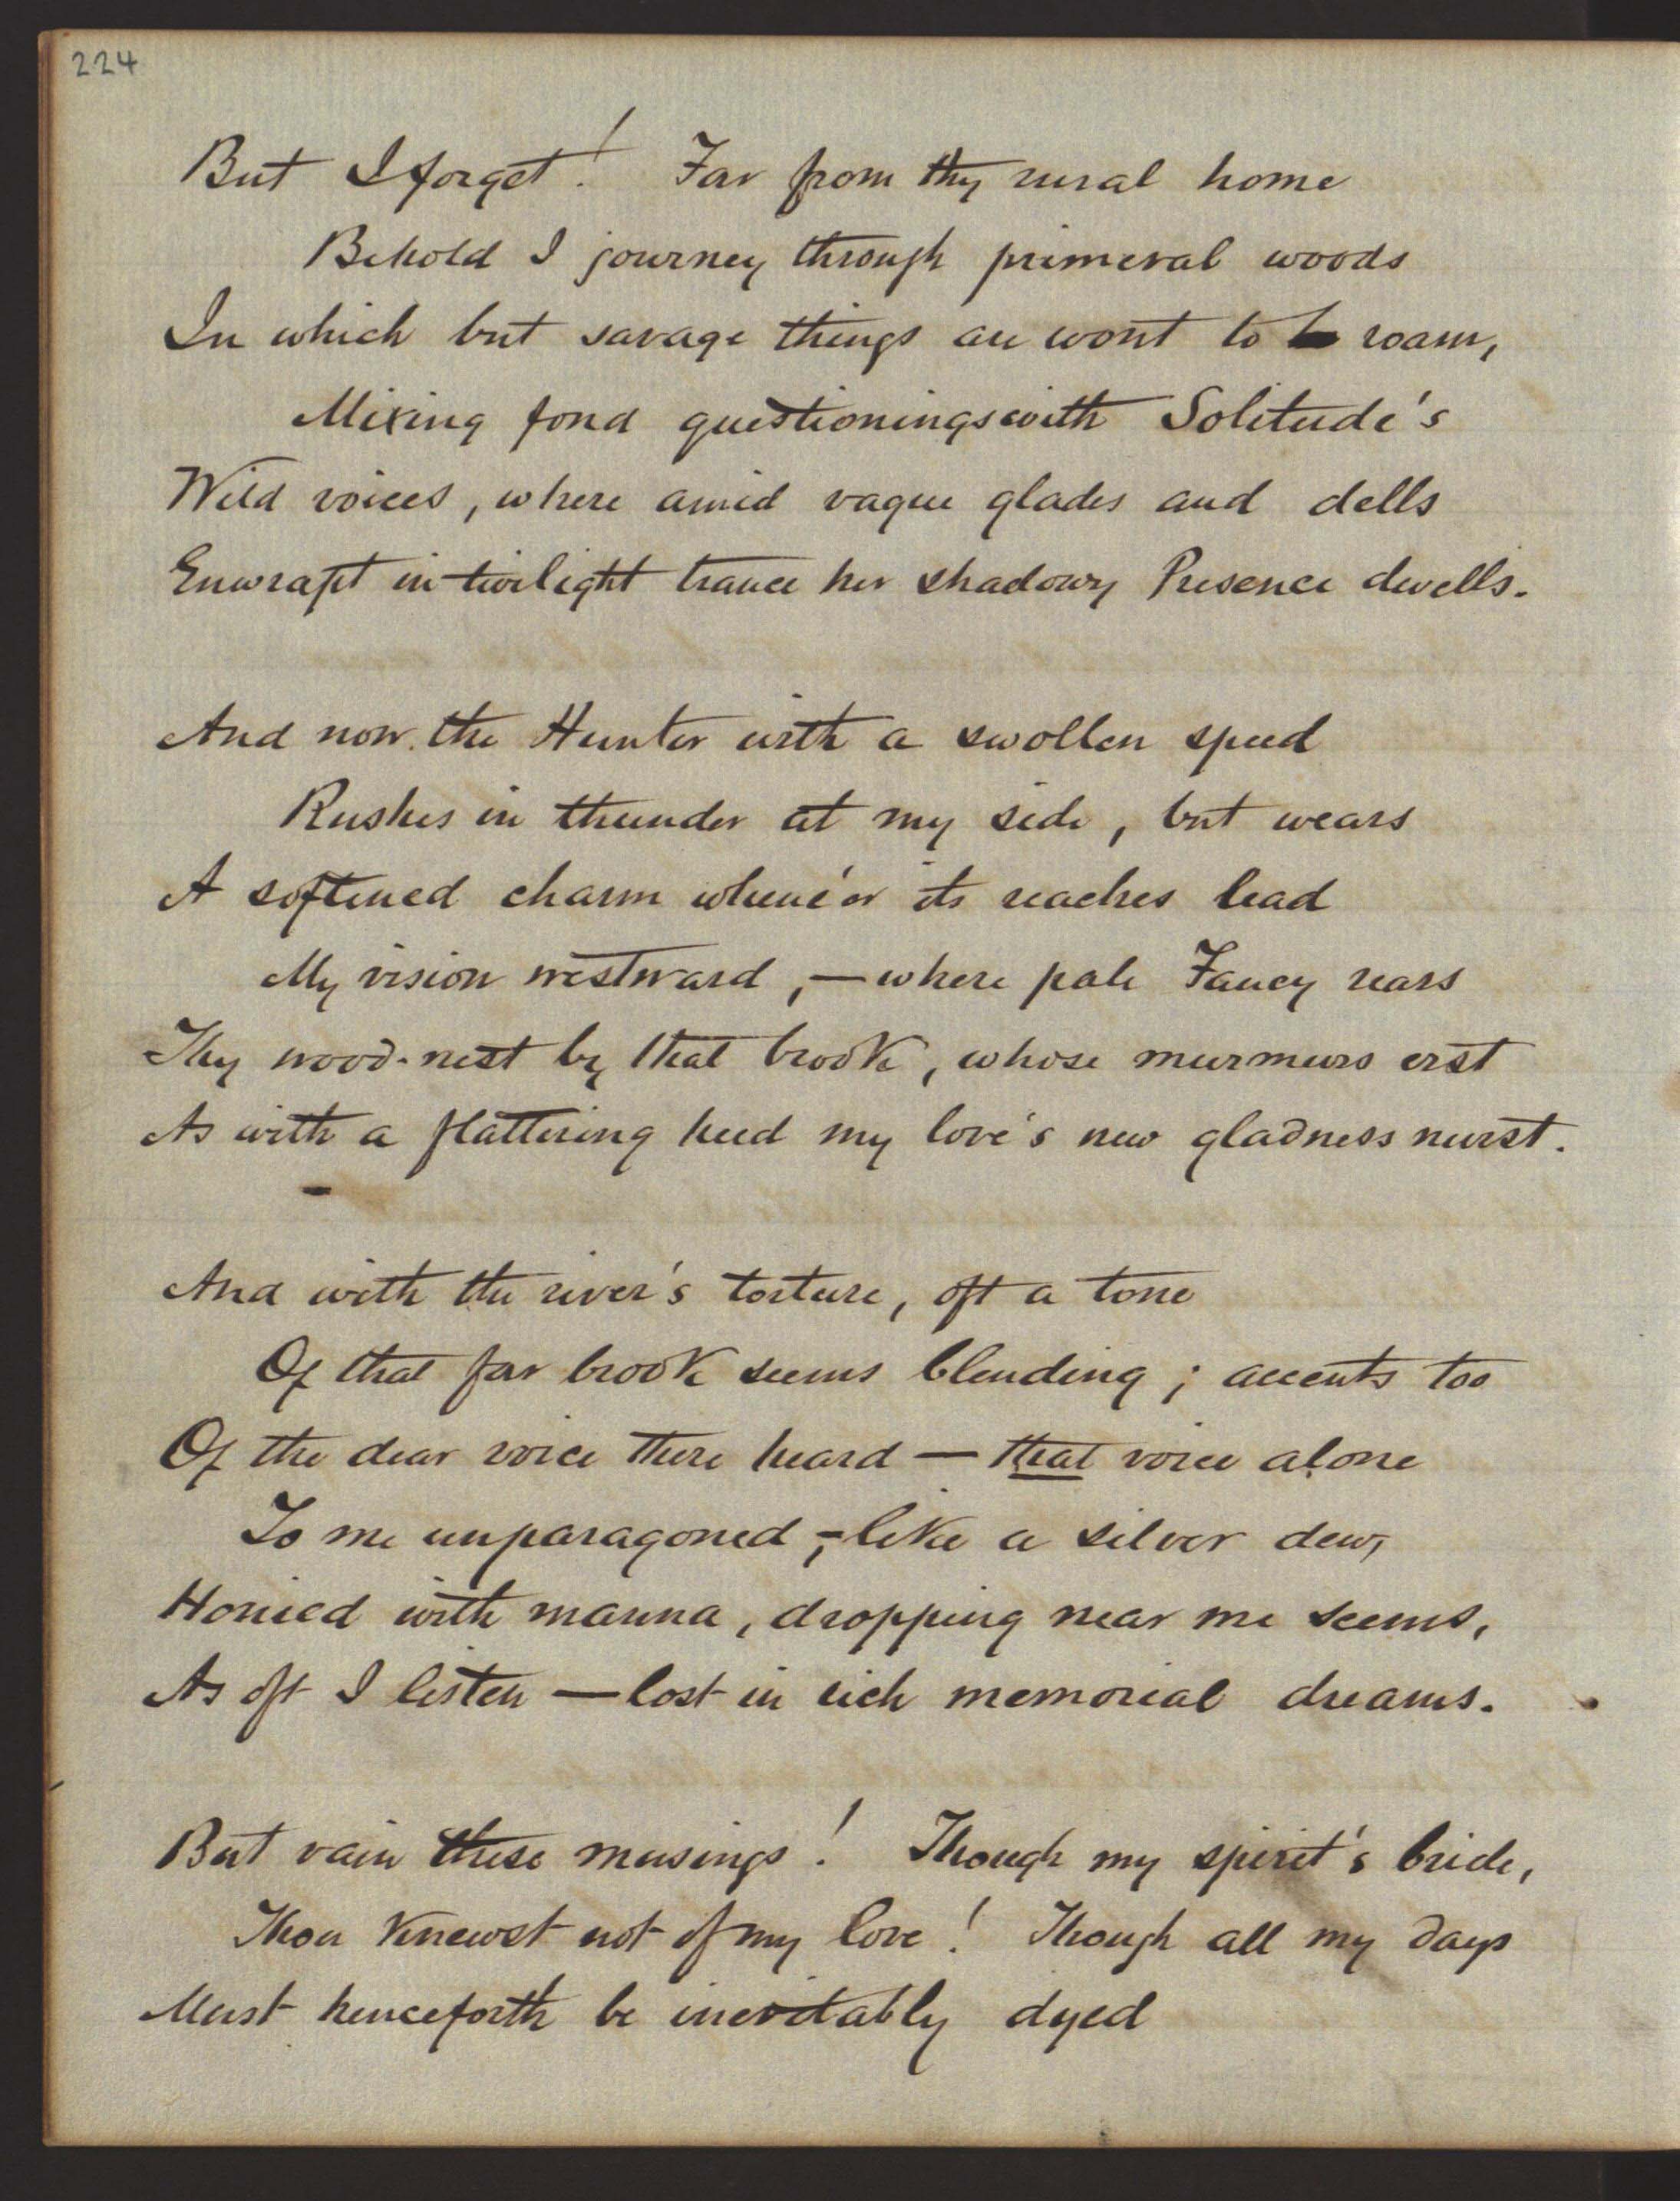 224
But I forget! Far from thy rural home
Behold I journey through primeval woods
In which but savage things are wont to roam,
Mixing fond questionings with Solitude's
Wild voices, where amid vague glades and dells
Enwrapt in twilight trance her shadowy Presence dwells.
And now the Hunter with a swollen speed
Rushes in thunder at my side, but wears
A softened charm whene'er its reaches lead
My vision westward, — where pale Fancy rears
Thy wood-nest by that brook, whose murmurs erst
As with a flattering heed my love's new gladness nurst.
And with the river's torture, oft a tone
Of that far brook seems blending; accents too
Of the dear voice there heard — that voice alone
To me unparagoned,—like a silver dew,
Honied with manna, dropping near me seems,
As oft I listen — lost in rich memorial dreams.
But vain these musings! Though my spirit's bride,
Thou knewst not of my love! Though all my days
Must henceforth be inevitably dyed